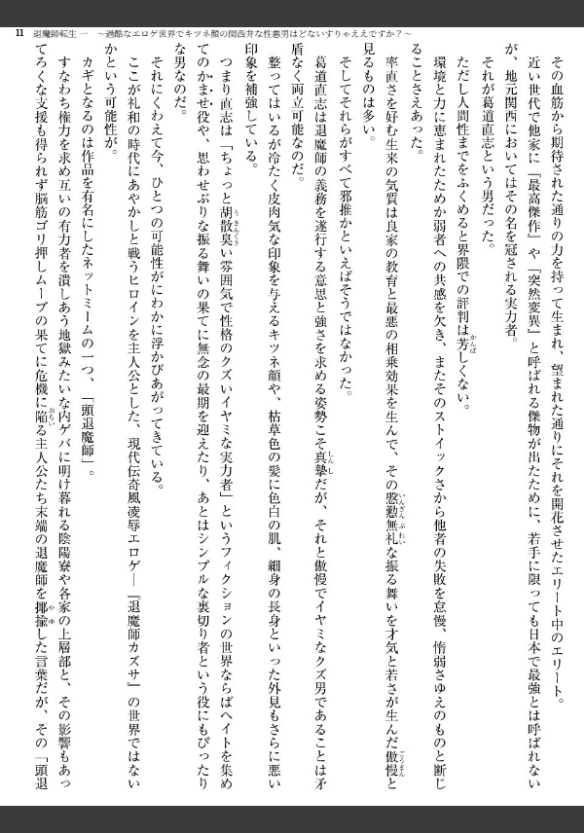 11 退魔師転生 一 ～過酷なエロゲ世界でキツネ顔の関西弁な性悪男はどないすりゃええですか？～
その血筋から期待された通りの力を持って生まれ、望まれた通りにそれを開花させたエリート中のエリート。
近い世代で他家に『最高傑作』や『突然変異』と呼ばれる傑物が出たために、若手に限っても日本で最強とは呼ばれない
が、地元関西においてはその名を冠される実力者。
それが葛道直志という男だった。
ただし人間性までをふくめると界隈での評判は芳しくない。
環境と力に恵まれたためか弱者への共感を欠き、またそのストイックさから他者の失敗を怠慢、惰弱さゆえのものと断じ
ることさえあった。
率直さを好む生来の気質は良家の教育と最悪の相乗効果を生んで、その慇懃無礼な振る舞いを才気と若さが生んだ傲慢と
見るものは多い。
そしてそれらがすべて邪推かといえばそうではなかった。
葛道直志は退魔師の義務を遂行する意思と強さを求める姿勢こそ真摯だが、それと傲慢でイヤミなクズ男であることは矛
盾なく両立可能なのだ。
整ってはいるが冷たく皮肉気な印象を与えるキツネ顔や、枯草色の髪に色白の肌、細身の長身といった外見もさらに悪い
印象を補強している。
つまり直志は「ちょっと胡散臭い雰囲気で性格のクズいイヤミな実力者」というフィクションの世界ならばヘイトを集め
てのかませ役や、思わせぶりな振る舞いの果てに無念の最期を迎えたり、あとはシンプルな裏切り者という役にもぴったり
な男なのだ。
それにくわえて今、ひとつの可能性がにわかに浮かびあがってきている。
ここが礼和の時代にあやかしと戦うヒロインを主人公とした、現代伝奇風凌辱エロゲ―『退魔師カズサ』の世界ではない
かという可能性が。
カギとなるのは作品を有名にしたネットミームの一つ、「頭退魔師」。
すなわち権力を求め互いの有力者を潰しあう地獄みたいな内ゲバに明け暮れる陰陽寮や各家の上層部と、その影響もあっ
てろくな支援も得られず脳筋ゴリ押しムーブの果てに危機に陥る主人公たち末端の退魔師を揶揄した言葉だが、その「頭退